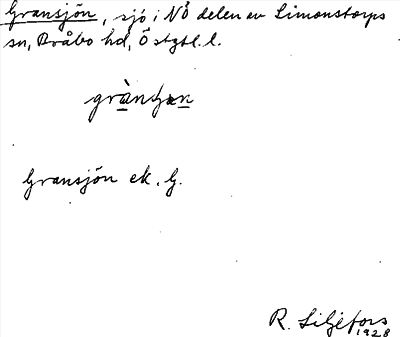 Gransjön, sjö i NÖ delen av Simonstorps
sn, Bråbo hd, Östgtl. l.
Gransjön ek. G.
R. Liljefors
1928